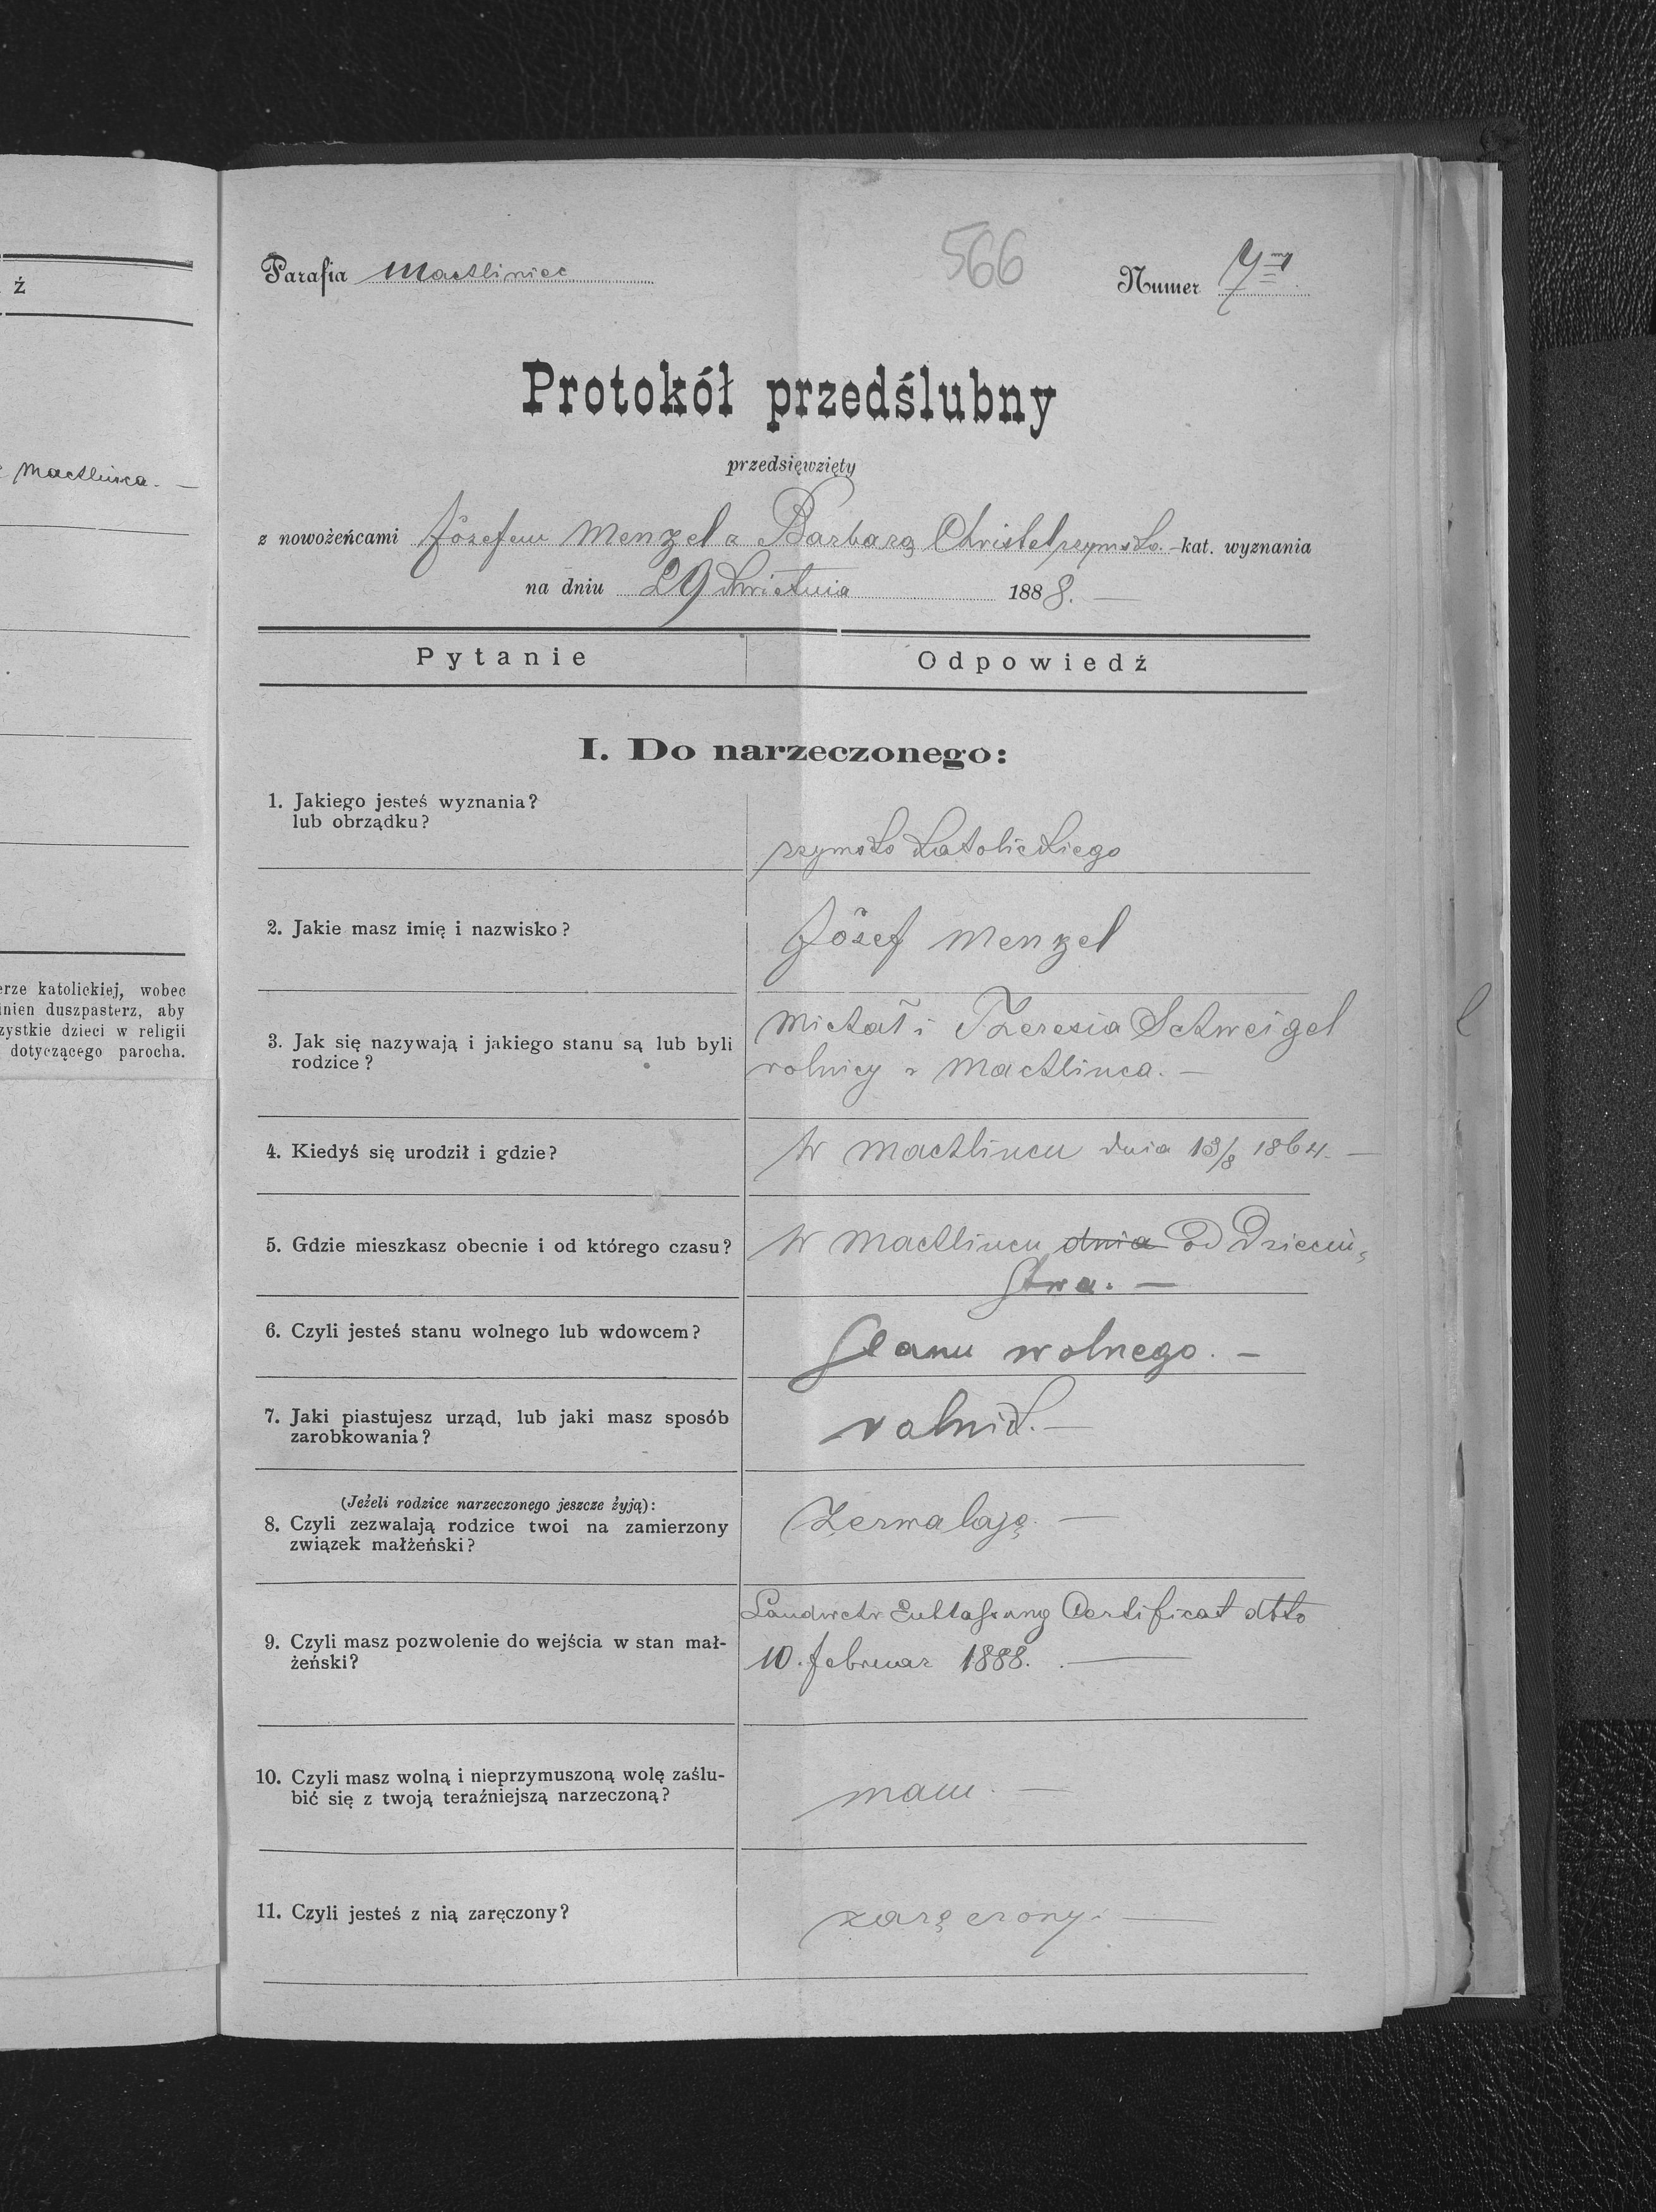 ż
Machlińca. —
erze katolickiej, wobec
inien duszpasterz, aby
zystkie dzieci w religii
dotyczącego parocha.
Parafia Machliniec
566
Numer 7my
Protokół przedślubny
przedsięwzięty
z nowożeńcami Józefem Menzel a Barbarą Christel rzymsko-kat. wyznania
na dniu 29 kwietnia 1888. —
Pytanie Odpowiedź
I. Do narzeczonego:
1. Jakiego jesteś wyznania?
lub obrządku?
rzymsko katolickiego
2. Jakie masz imię i nazwisko?
Józef Menzel
3. Jak się nazywają i jakiego stanu są lub byli
rodzice?
Michał i Theresia Schweigel
rolnicy z Machlinca. —
4. Kiedyś się urodził i gdzie?
W Machlincu dnia 13/8 1864. —
5. Gdzie mieszkasz obecnie i od którego czasu?
W Machlincu dnia od Dzieciń,
stwa. —
6. Czyli jesteś stanu wolnego lub wdowcem?
Stanu wolnego. —
7. Jaki piastujesz urząd, lub jaki masz sposób
zarobkowania?
rolnik. —
(Jeżeli rodzice narzeczonego jeszcze żyją):
8. Czyli zezwalają rodzice twoi na zamierzony
związek małżeński?
Zezwalają. —
9. Czyli masz pozwolenie do wejścia w stan mał-
żeński?
Landwehr Entlassung Certificat dtto
10. februar 1888. —
10. Czyli masz wolną i nieprzymuszoną wolę zaślu-
bić się z twoją teraźniejszą narzeczoną?
mam. —
11. Czyli jesteś z nią zaręczony?
zaręczony. —